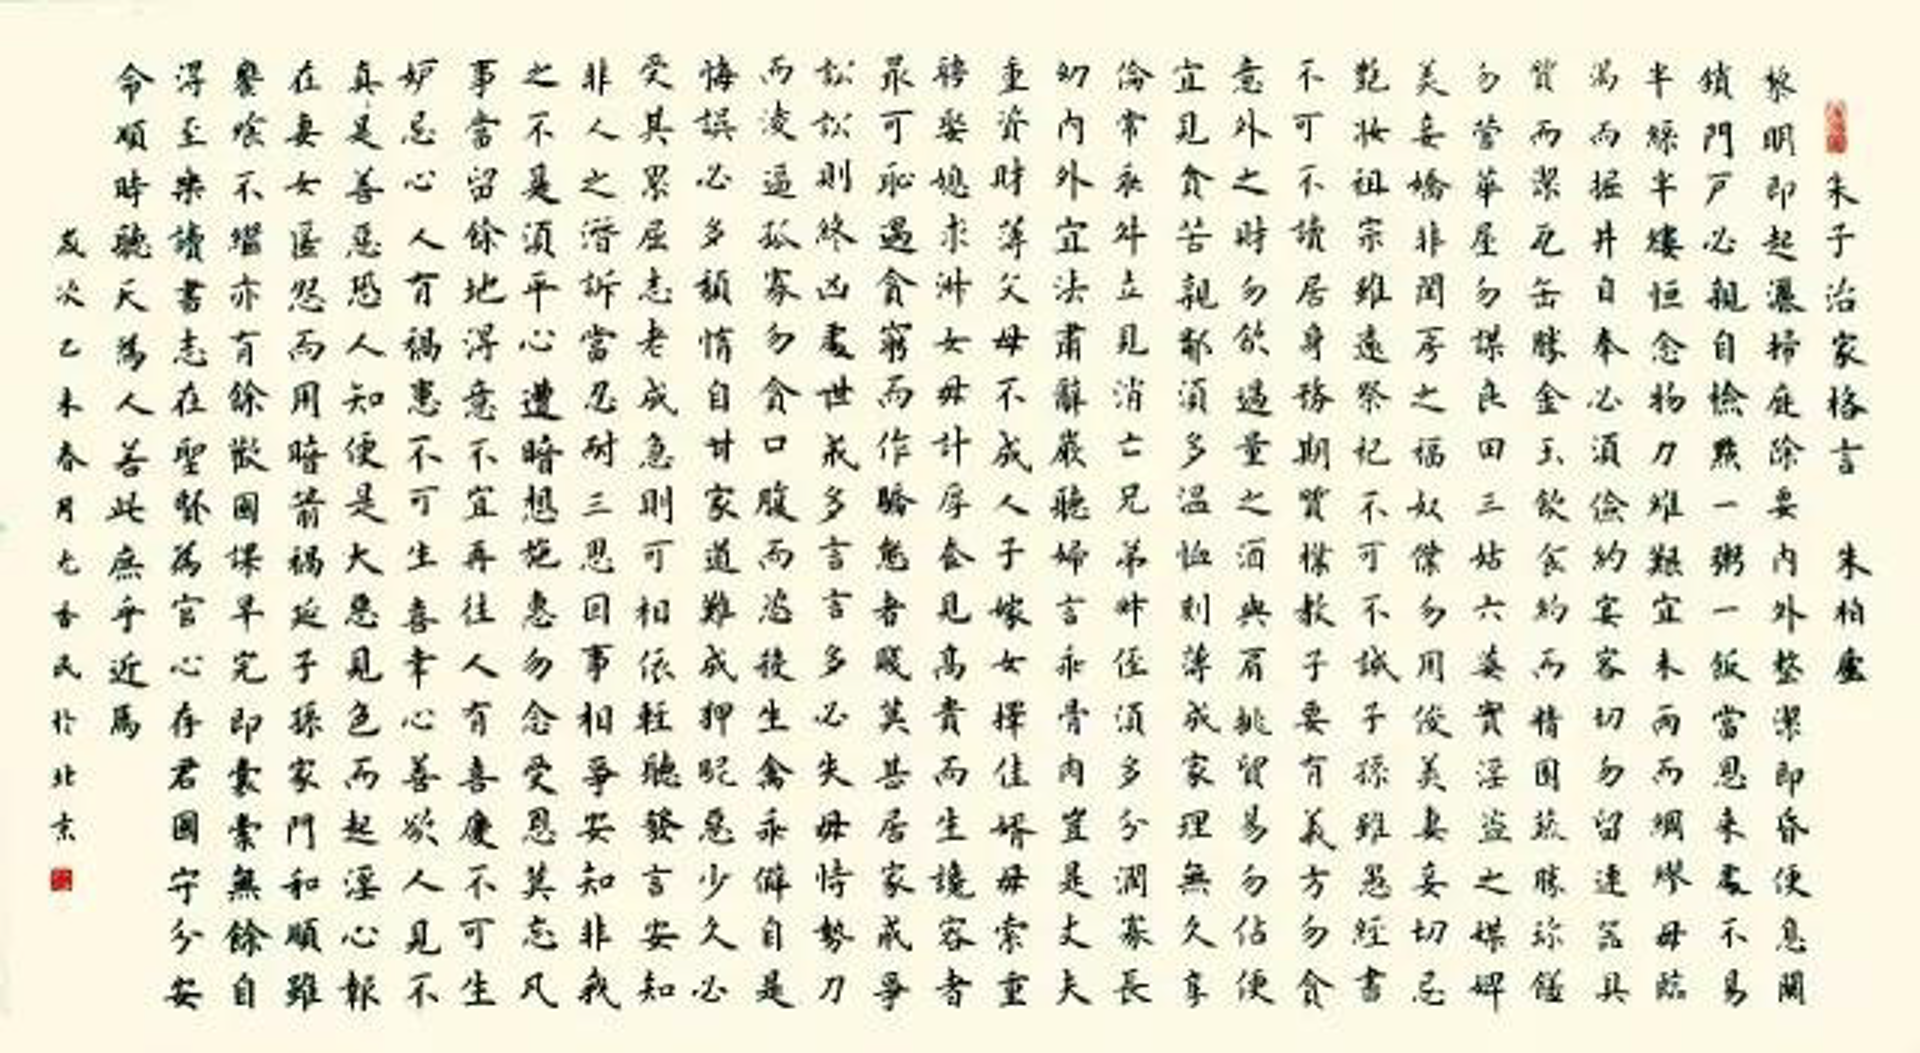 朱子治家格言 朱柏廬
黎明即起灑掃庭除要内外整潔即昏便息關
鎖門戶必親自檢點一粥一飯當思来處不易
半絲半縷恒念物力維艱宜未雨而綢繆毋臨
渴而掘井自奉必須儉約宴客切勿留連器具
質而潔瓦缶勝金玉飲食約而精園蔬勝珎饈
勿營華屋勿謀良田三姑六婆實淫盜之媒婢
美妾嬌非閨房之福奴僕勿用俊美妻妾切忌
艷妝祖宗雖遠祭祀不可不誠子孫雖愚經書
不可不讀居身務期質樸教子要有義方勿貪
意外之財勿飲過量之酒與肩挑貿易勿佔便
宜見貪苦親鄰須多温恤刻薄成家理無久享
倫常乖舛立見消亡兄弟叔侄須多分潤寡長
幼内外宜法肅辭嚴聽婦言乖骨肉豈是丈夫
重資財薄父母不成人子嫁女擇佳婿毋索重
聘娶媳求淑女毋計厚奩見髙貴而生諂容者
最可恥遇貪窮而作驕態者賤莫甚居家戒爭
訟訟則終凶處世戒多言言多必失毋恃勢力
而凌逼孤寡勿貪口腹而恣殺生禽乖僻自是
悔誤必多頹惰自甘家道難成狎昵惡少久必
受其累屈志老成急則可相依輕聽發言安知
非人之譖訴當忍耐三思因事相爭安知非我
之不是須平心遭暗想施惠勿念受恩莫忘凡
事當留餘地得意不宜再往人有喜慶不可生
妒忌心人有禍患不可生喜幸心善欲人見不
真是善惡恐人知便是大惡見色而起淫心報
在妻女匿怨而用暗箭禍延子孫家門和順雖
饔飧不繼亦有餘歡國課早完即囊橐無餘自
得至樂讀書志在聖賢為官心存君國守分安
命順時聽天為人若此庶乎近焉
歲次乙未春月七香民於北京